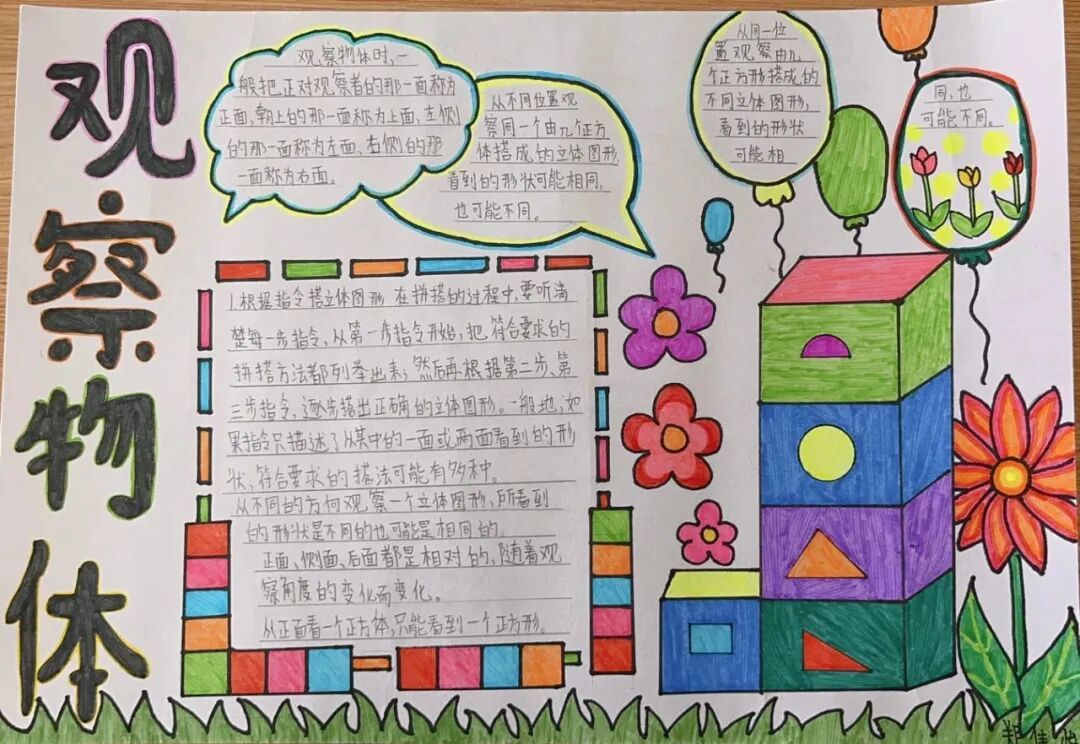 观察物体
观察物体时,一
般把正对观察者的那一面称为
正面,朝上的那一面称为上面,左侧
的那一面称为左面,右侧的那
一面称为右面。
从不同位置观
察同一个由几个正方
体搭成的立体图形,
看到的形状可能相同,
也可能不同。
从同一位
置观察由几
个正方形搭成的
不同立体图形,
看到的形状
可能相
同,也
可能不同。
1.根据指令搭立体图形 在拼搭的过程中,要听清
楚每一步指令,从第一步指令开始,把符合要求的
拼搭方法都列举出来;然后再根据第二步、第
三步指令,逐步搭出正确的立体图形。一般地,如
果指令只描述了从其中的一面或两面看到的形
状,符合要求的搭法可能有多种。
从不同的方向观察一个立体图形,所看到
的形状是不同的也可能是相同的。
正面、侧面、后面都是相对的,随着观
察角度的变化而变化。
从正面看一个正方体,只能看到一个正方形。